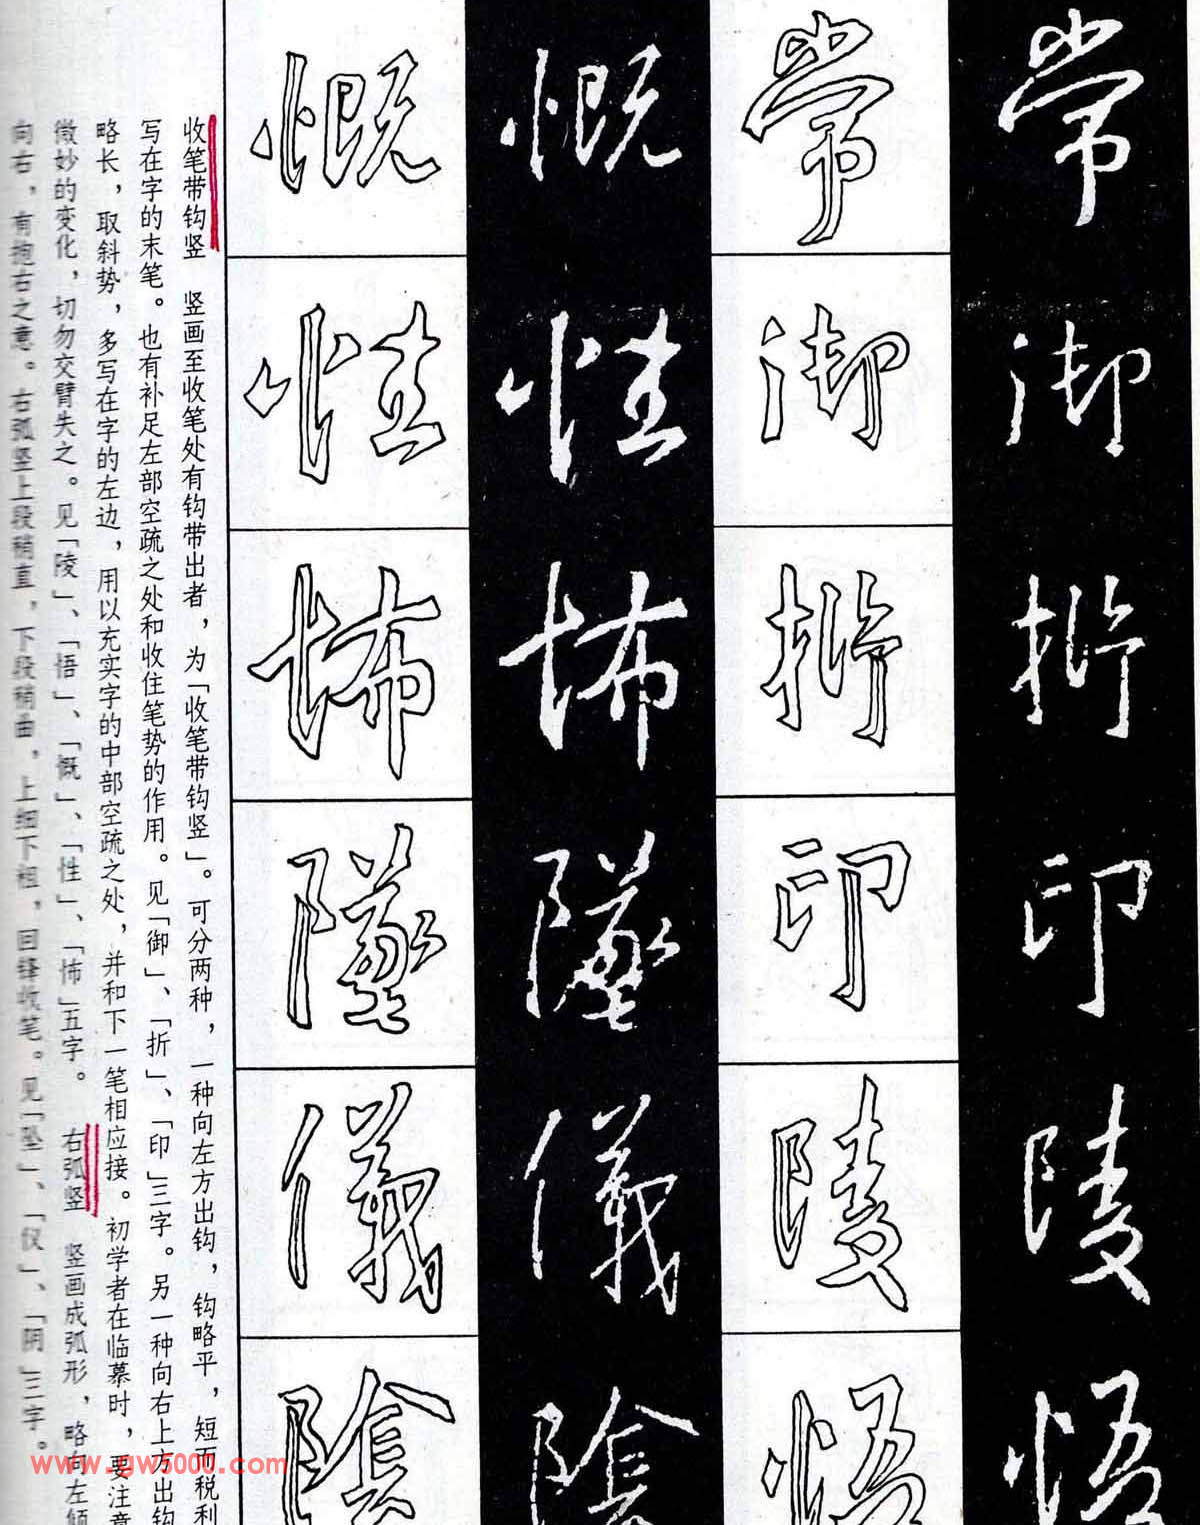 常御折印陵悟
常御折印陵悟
慨性怖墜儀陰
慨性怖墜儀陰
收笔带钩竖　竖画至收笔处有钩带出者，为「收笔带钩竖」。可分两种，一种向左方出钩，钩略平，短而税利
写在字的末笔。也有补足左部空疏之处和收住笔势的作用。见「御」、「折」、「印」三字。另一种向右上方出钩
略长，取斜势，多写在字的左边，用以充实字的中部空疏之处，并和下一笔相应接。初学者在临慕时，要注意
微妙的变化，切勿交臂失之。见「陵」、「悟」、「慨」、「性」、「怖」五字。　右弧竖　竖画成弧形，略向左倾
向右，有抱右之意。右弧竖上段稍直，下段稍曲，上细下粗，回锋收笔。见「坠」、「仪」、「阴」三字。
www.gw5000.com